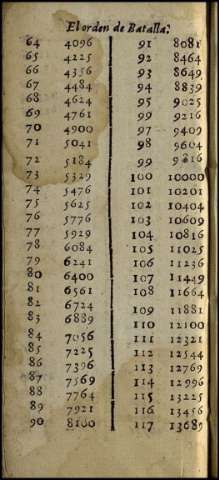 El orden de Batalla:
64 4096
65 4225
66 4356
67 4484
68 4624
69 4761
70 4900
71 5041
72 5184
73 5329
74 5476
75 5625
76 5776
77 5929
78 6084
79 6241
80 6400
81 6561
82 6724
83 6889
84 7056
85 7225
86 7396
87 7569
88 7764
89 7921
90 8100
91 8081
92 8464
93 8649
94 8839
95 9025
99 9216
97 9409
98 9604
99 9816
100 10000
101 10201
102 10404
103 10609
104 10816
105 11025
106 11236
107 11449
108 11664
109 11881
110 12100
111 12321
112 12544
113 12769
114 12996
115 13225
116 13456
117 13689